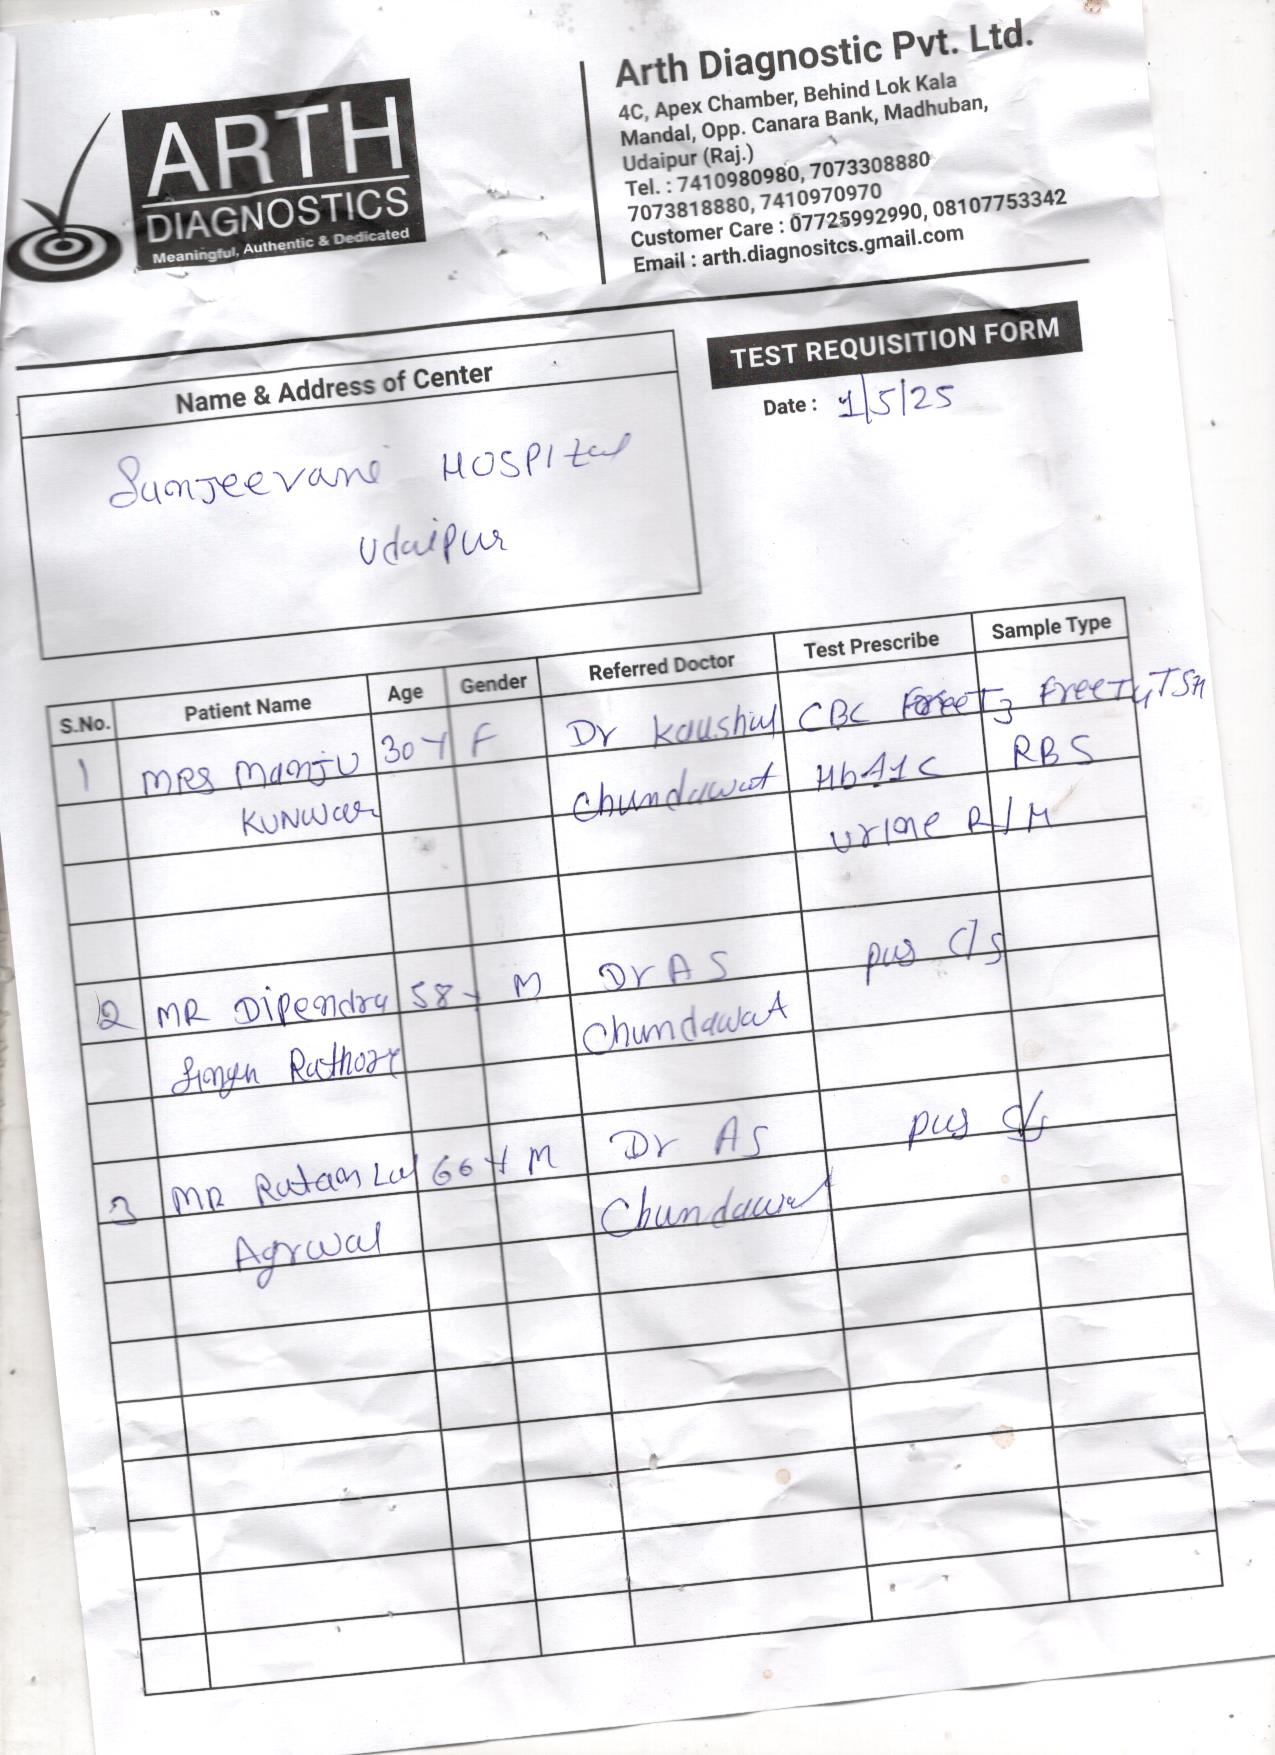 ARTH
DIAGNOSTICS
Meaningful, Authentic & Dedicated
Arth Diagnostic Pvt. Ltd.
4C, Apex Chamber, Behind Lok Kala
Mandal, Opp. Canara Bank, Madhuban,
Udaipur (Raj.)
Tel. : 7410980980, 7073308880
7073818880, 7410970970
Customer Care : 07725992990, 08107753342
Email : arth.diagnositcs.gmail.com
Name & Address of Center
Sunjeevani HOSPItal
Udaipur
TEST REQUISITION FORM
Date : 1/5/25
S.No. Patient Name Age Gender Referred Doctor Test Prescribe Sample Type
1 MRS Manju 30 Y F Dr Kaushal CBC Free T3 Free T4 TSH
KUNWar Chundawat HbA1C RBS
Urine R/M
2 MR Dipendra 58 Y M Dr A S pus C/S
Singh Rathore Chundawat
3 MR Ratan Lal 66 Y M Dr AS pus C/S
Agrwal Chundawat